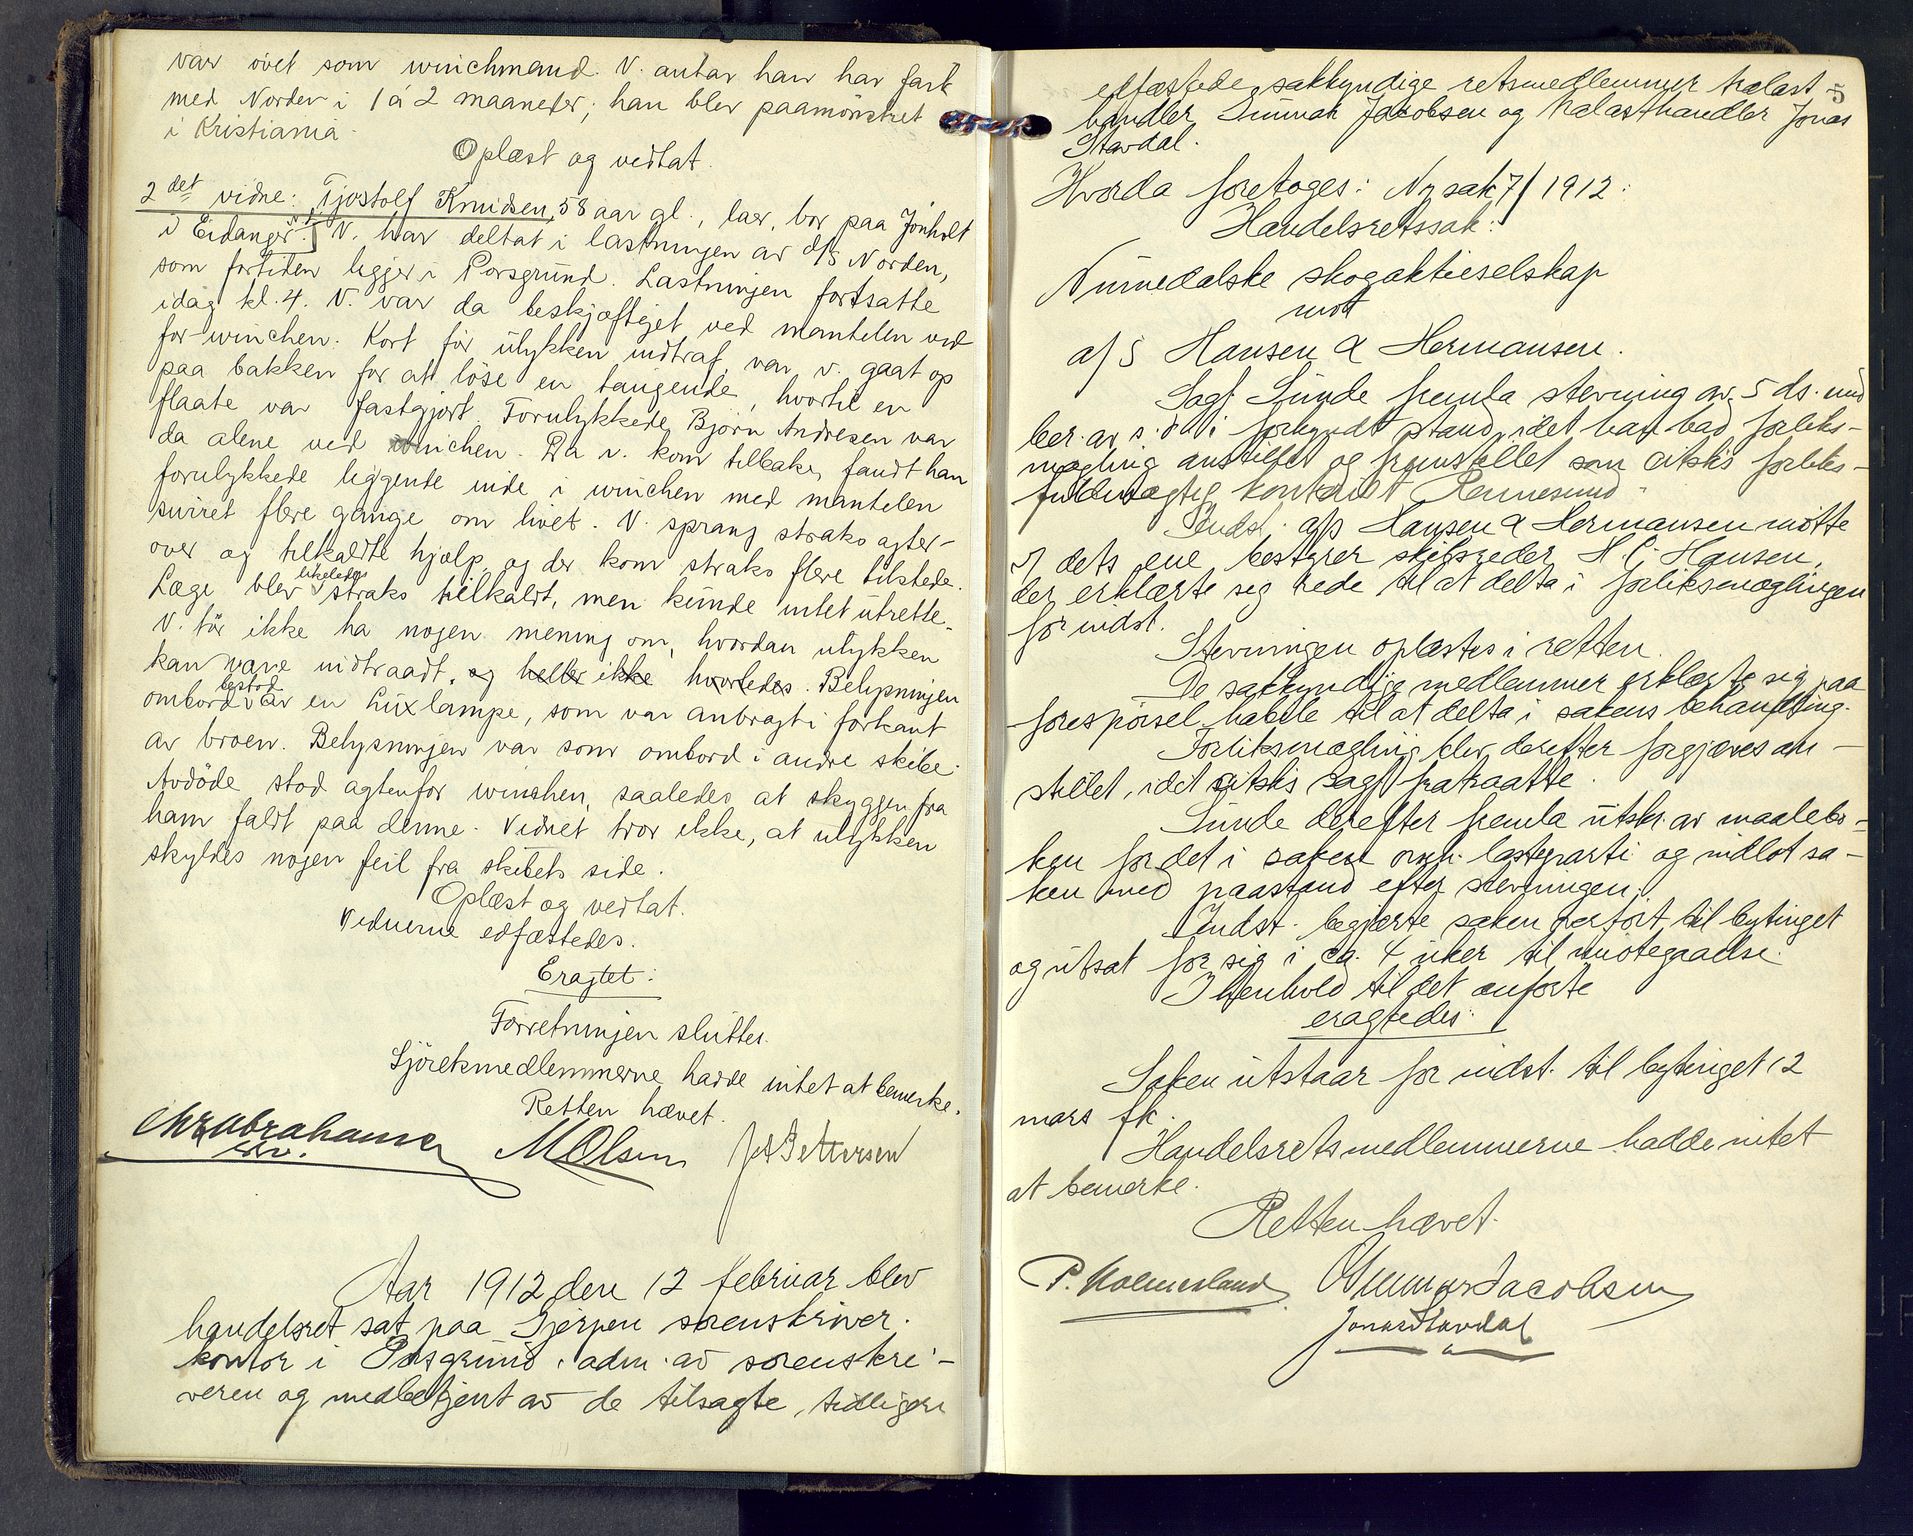 var övet som winchmand. V. antar han har fart
med Norden i 1 à 2 maaneder; han blev paamönstret
i Kristiania.
Oplæst og vedtat.
2det vidne: Tjostolf Knudsen, 58 aar gl., laer, bor paa Jönholt
i Eidanger. V. har deltat i lastningen av d/s Norden,
som fortiden ligger i Porsgrund. Lastningen fortsatte
idag kl. 4. V. var da beskjæftiget ved mantelen ved
for-winchen. Kort för ulykken indtraf, var v. gaat op
paa bakken for at löse en tangende, hvortil en
flaate var fastgjort. Forulykkede Björn Andresen var
da alene ved winchen. Da v. kom tilbake, fandt han
forulykkede liggende inde i winchen med mantelen
surret flere gange om livet. V. sprang straks agter-
over og tilkaldte hjælp, og der kom straks flere tilstede.
Læge blev likeledes straks tilkaldt, men kunde intet utrette.
V. tör ikke ha nogen mening om, hvordan ulykken
kan være indtraadt, og heller ikke hvorledes. Belysningen
ombord var bestod en Luxlampe, som var anbragt i forkant
av broen. Belysningen var som ombord i andre skibe.
Avdöde stod agtenfor winchen, saaledes at skyggen fra
ham faldt paa denne. Vidnet tror ikke, at ulykken
skyldes nogen feil fra skibets side.
Oplæst og vedtat.
Vidnerne edfæstedes.
Eragtet:
Forretningen slutter.
Sjöretsmedlemmerne havde intet at bemerke.
Retten hævet.
Chr Abrahamsen M Olsen Pettersen
Aar 1912 den 12 februar blev
handelsret sat paa Gjerpen sorenskriver-
kontor i Porsgrund. adm. av sorenskri-
veren og medbetjent av de tilsagte, tidligere
5
edfæstede sakkyndige retsmedlemmer trælast-
handler Gunnar Jacobsen og trælasthandler Jonas
Stavdal.
Hvorda foretoges: Ny sak 7/1912:
Handelsretssak:
Numedalske skogaktieselskap
mot
a/S Hansen & Hermansen.
Sagf. Sunde fremla stevning av 5 ds. med
ber. av s. d. i forkyndt stand, idet han bad forliks-
mægling anstillet og fremstillet som citsts forliks-
fuldmægtig kontorist Rennesund.
Indst. a/s Hansen & Hermansen mötte
v/ dets ene bestyrer skibsreder H. C. Hansen,
der erklærte sig rede til at delta i forliksmæglingen
for indst.
Stevningen oplæstes i retten.
De sakkyndige medlemmer erklærte sig paa
forespörsel habile til at delta i sakens behandling.
Forliksmægling blev derefter forgjæves an-
stillet, idet citsts sagf. fratraatte.
Sunde derefter fremla utskr. av maalebo-
ken for det i saken omh. lasteparti og indlot sa-
ken med paastand efter stevningen.
Indst. begjærte saken overfört til bytinget
og utsat for sig i ca. 4 uker til imötegaaelse.
I henhold til det anförte
eragtedes:
Saken utstaar for indst. til bytinget 12
mars fk.
Handelsretsmedlemmerne hadde intet
at bemerke.
Retten hævet.
P. Kolmesland Gunnar Jacobsen
Jonas Stavdal